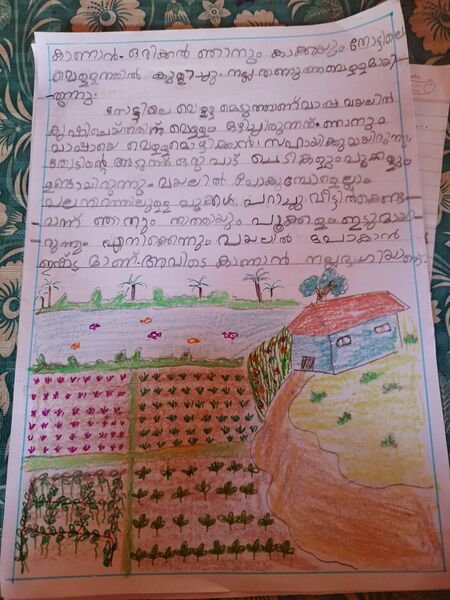 കാണാൻ. ഒരിക്കൽ ഞാനും കാക്കയും തോട്ടിലെ
വെള്ളത്തിൽ കുളിച്ചു. നല്ല തണുത്ത വെള്ളമായി-
-രുന്നു.
തോട്ടിലെ വെള്ളമെടുത്താണ് വാപ്പ വയലിൽ
കൃഷിചെയ്തതിന് വെള്ളം ഒഴിച്ചിരുന്നത്. ഞാനും
വാപ്പായെ വെള്ളമൊഴിക്കാൻ സഹായിക്കുമായിരുന്നു.
തോടിന്റെ അടുത്ത് ഒരുപാട് ചെടികളും പൂക്കളും
ഉണ്ടായിരുന്നു. വയലിൽ പോകുമ്പോഴെല്ലാം
പല നിറത്തിലുള്ള പൂക്കൾ പറിച്ചു വീട്ടിൽകൊണ്ട-
വന്ന് ഞാനും ഇത്തിയും പൂക്കളം ഇടുമായി-
-രുന്നു. എനിക്കെന്നും വയലിൽ പോകാൻ
ഇഷ്ട മാണ്. അവിടെ കാണാൻ നല്ലഭംഗിയാണ്.